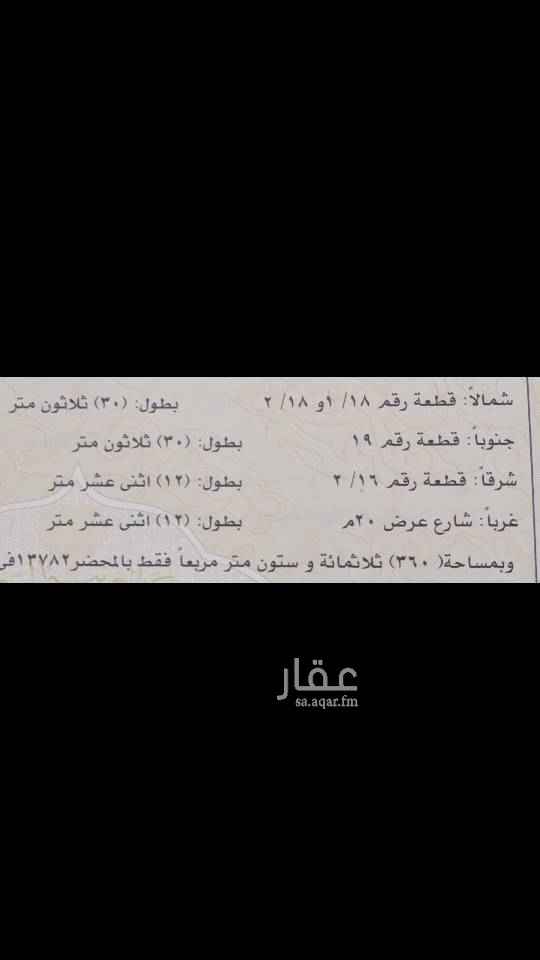 شمالاً: قطعة رقم ١٨/ ١و ١٨/ ٢ بطول: (٣٠) ثلاثون متر
جنوباً: قطعة رقم ١٩ بطول: (٣٠) ثلاثون متر
شرقاً: قطعة رقم ١٦/ ٢ بطول: (١٢) اثنى عشر متر
غرباً: شارع عرض ٢٠م بطول: (١٢) اثنى عشر متر
وبمساحة( ٣٦٠) ثلاثمائة و ستون متر مربعاً فقط بالمحضر١٣٧٨٢فى
عقار
sa.aqar.fm